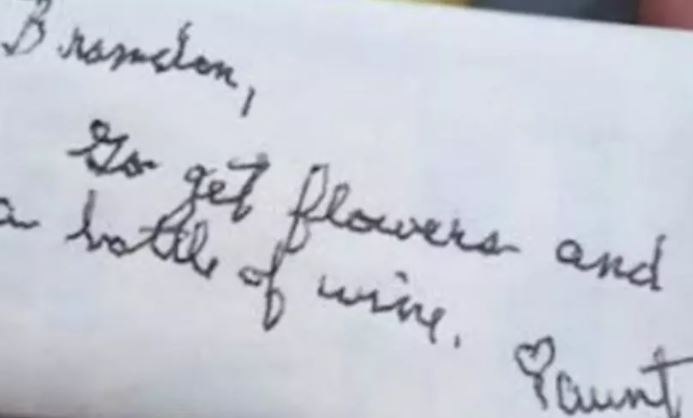 Brandon,
Go get flowers and
a bottle of wine.
♡ aunt